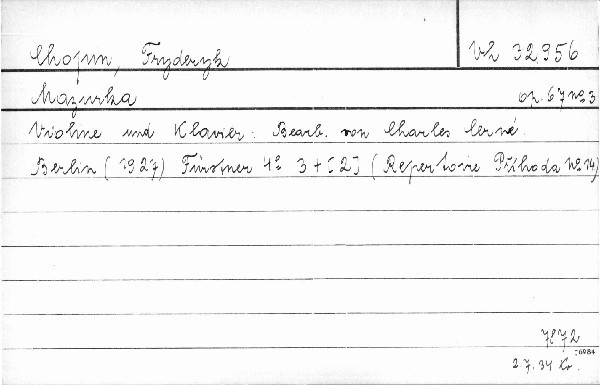 Chopin, Fryderyk Vh 32.956
Mazurka op. 67 no 3
Violine und Klavier. Bearb. von Charles Cerné.
Berlin (1927) Fürstner 4° 3 + [2] (Repertoire Příhoda No 14)
6984
2.7.34